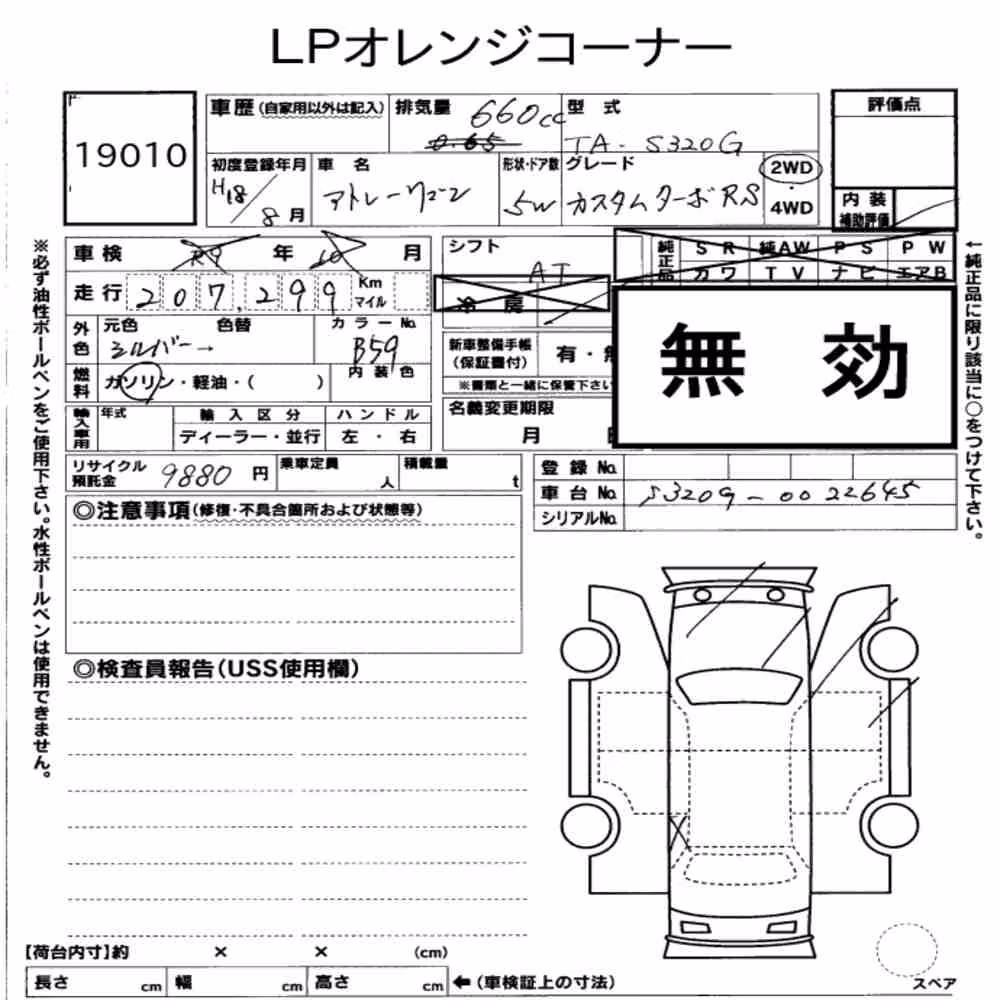 LPオレンジコーナー
19010
車歴 (自家用以外は記入)
排気量 660cc
0.65
型式
TA-S320G
評価点
初度登録年月
H18/8月
車名
アトレーワゴン
形状・ドア数
5W
グレード
カスタムターボRS
2WD
・
4WD
内装
補助評価
車検 R9年10月
シフト
AT
純正品
SR 純AW PS PW
カワ TV ナビ エアB
走行 207,299 Km
マイル
冷房
無効
外色
元色 色替
シルバー→
カラーNo.
B59
内装色
新車整備手帳
(保証書付)
有・無
※書類と一緒に保管下さい
燃料
ガソリン・軽油・( )
名義変更期限
月
輸入車用
年式
輸入区分
ディーラー・並行
ハンドル
左・右
リサイクル
預託金 9880円
乗車定員
人
積載量
t
登録No.
車台No. S320G-0022645
シリアルNo.
◎注意事項(修復・不具合箇所および状態等)
◎検査員報告(USS使用欄)
【荷台内寸】約 × × (cm)
長さ cm 幅 cm 高さ cm ←(車検証上の寸法)
スペア
※必ず油性ボールペンをご使用下さい。水性ボールペンは使用できません。
←純正品に限り該当に○をつけて下さい。